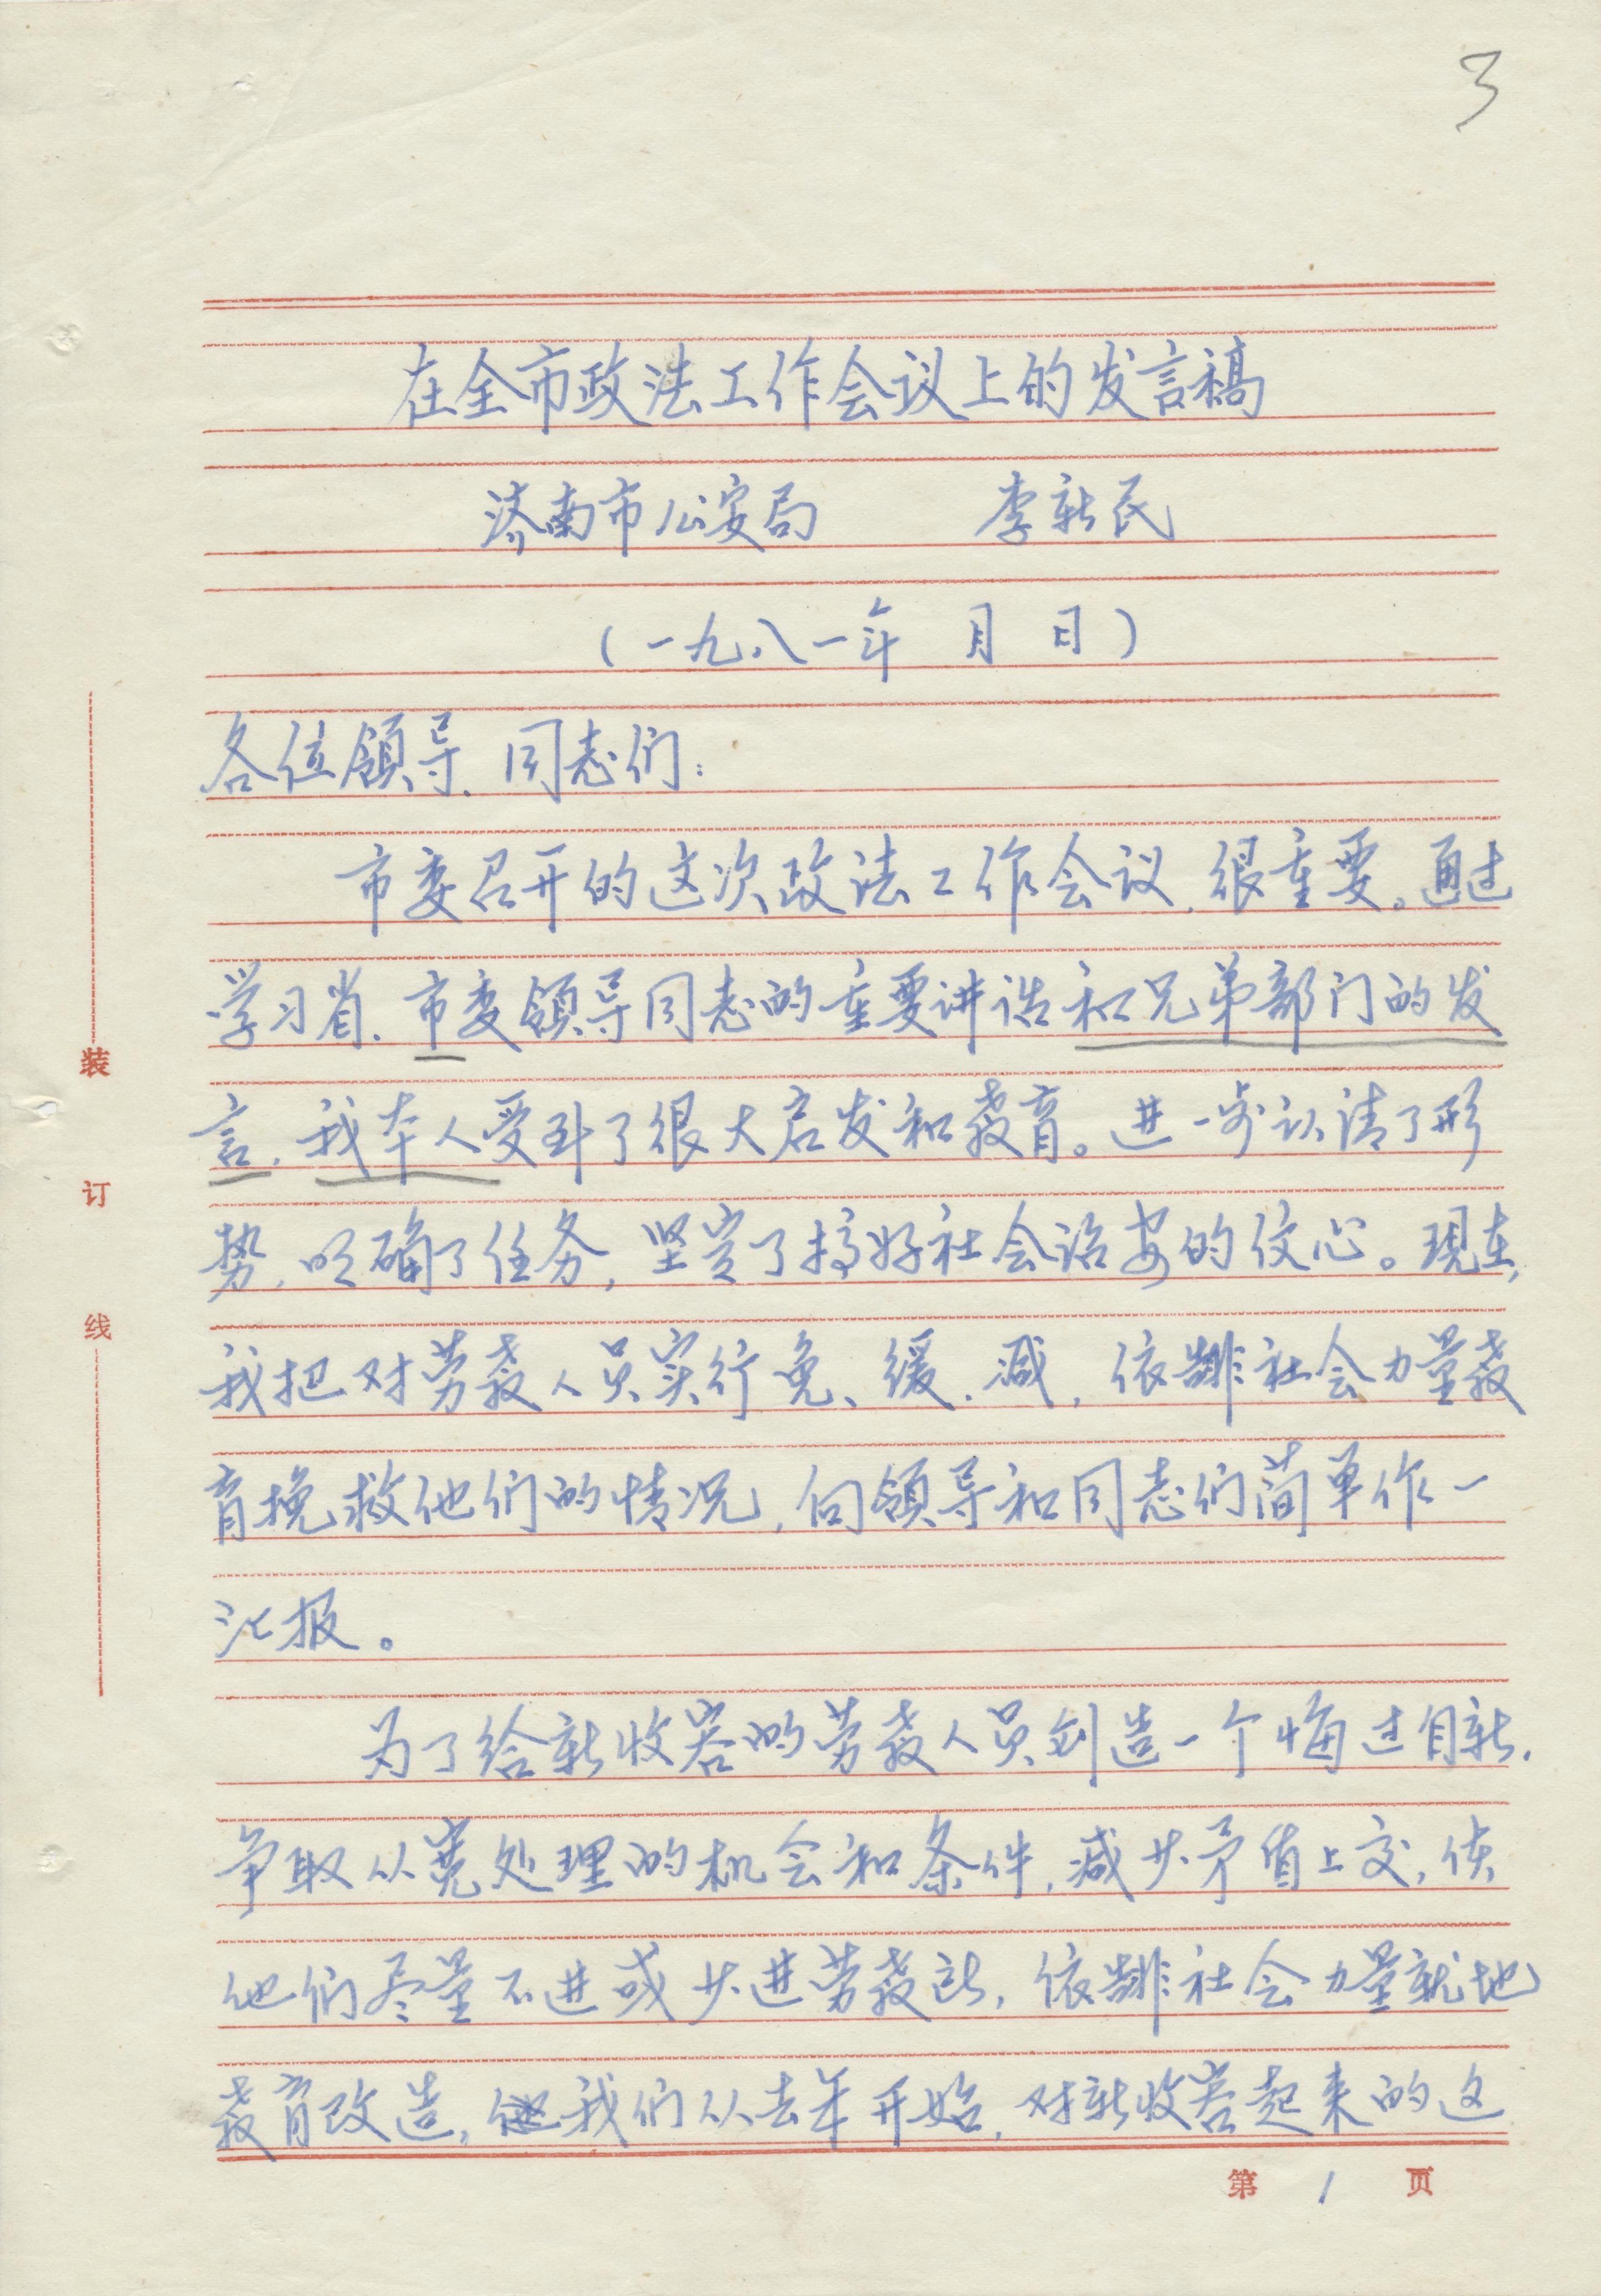 3
在全市政法工作会议上的发言稿
济南市公安局 李新民
(一九八一年 月 日)
各位领导、同志们:
市委召开的这次政法工作会议,很重要。通过
学习省、市委领导同志的重要讲话和兄弟部门的发
言,我本人受到了很大启发和教育。进一步认清了形
势,明确了任务,坚定了搞好社会治安的信心。现在,
我把对劳教人员实行免、缓、减,依靠社会力量教
育挽救他们的情况,向领导和同志们简单作一
汇报。
为了给新收容的劳教人员创造一个悔过自新,
争取从宽处理的机会和条件,减少矛盾上交,使
他们尽量不进或少进劳教所,依靠社会力量就地
教育改造,我们从去年开始,对新收容起来的这
第 1 页
装
订
线